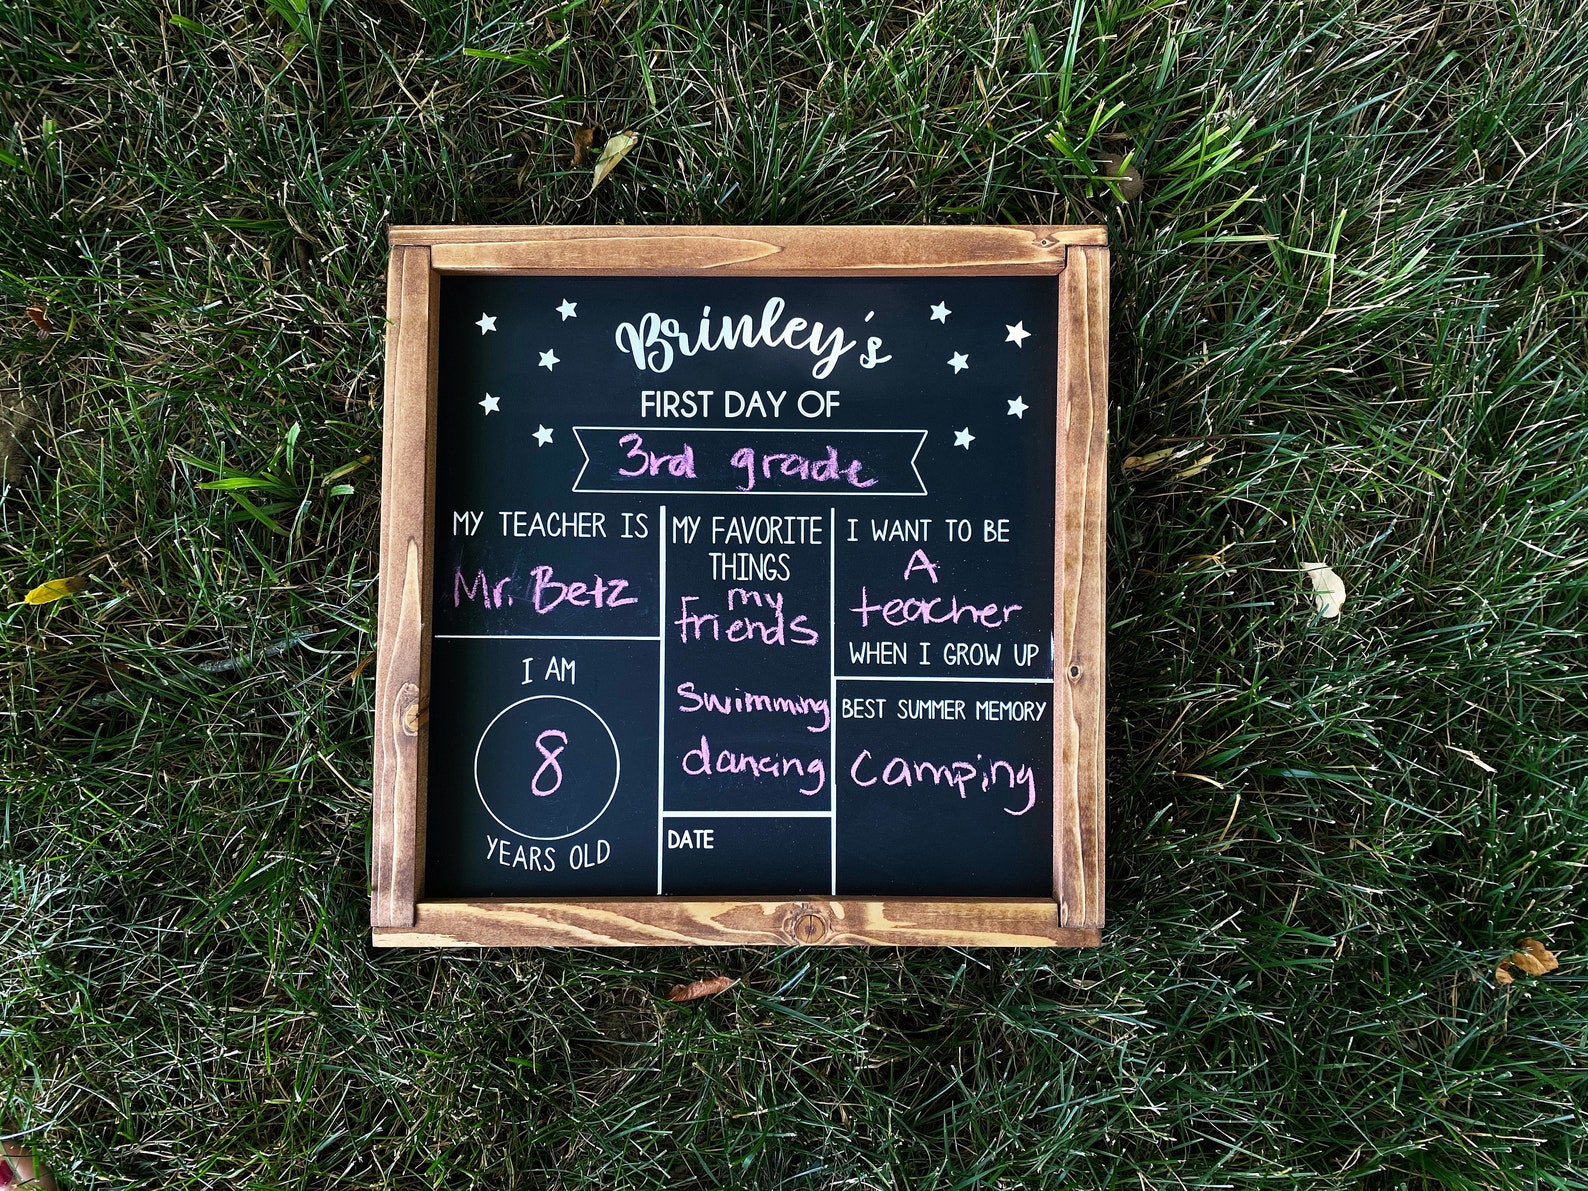 Brinley's
FIRST DAY OF
3rd grade
MY TEACHER IS
Mr. Betz
I AM
8
YEARS OLD
MY FAVORITE
THINGS
my
friends
swimming
dancing
DATE
I WANT TO BE
A
teacher
WHEN I GROW UP
BEST SUMMER MEMORY
Camping